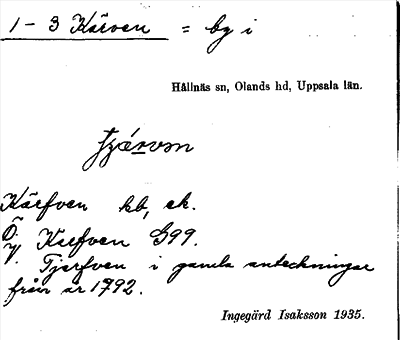 1 - 3 Kärven = by i
Hållnäs sn, Olands hd, Uppsala län.
Kärfven kb, ek.
Ö.
V. Kerfven G99.
Tjerfven i gamla anteckningar
från år 1792.
Ingegärd Isaksson 1935.